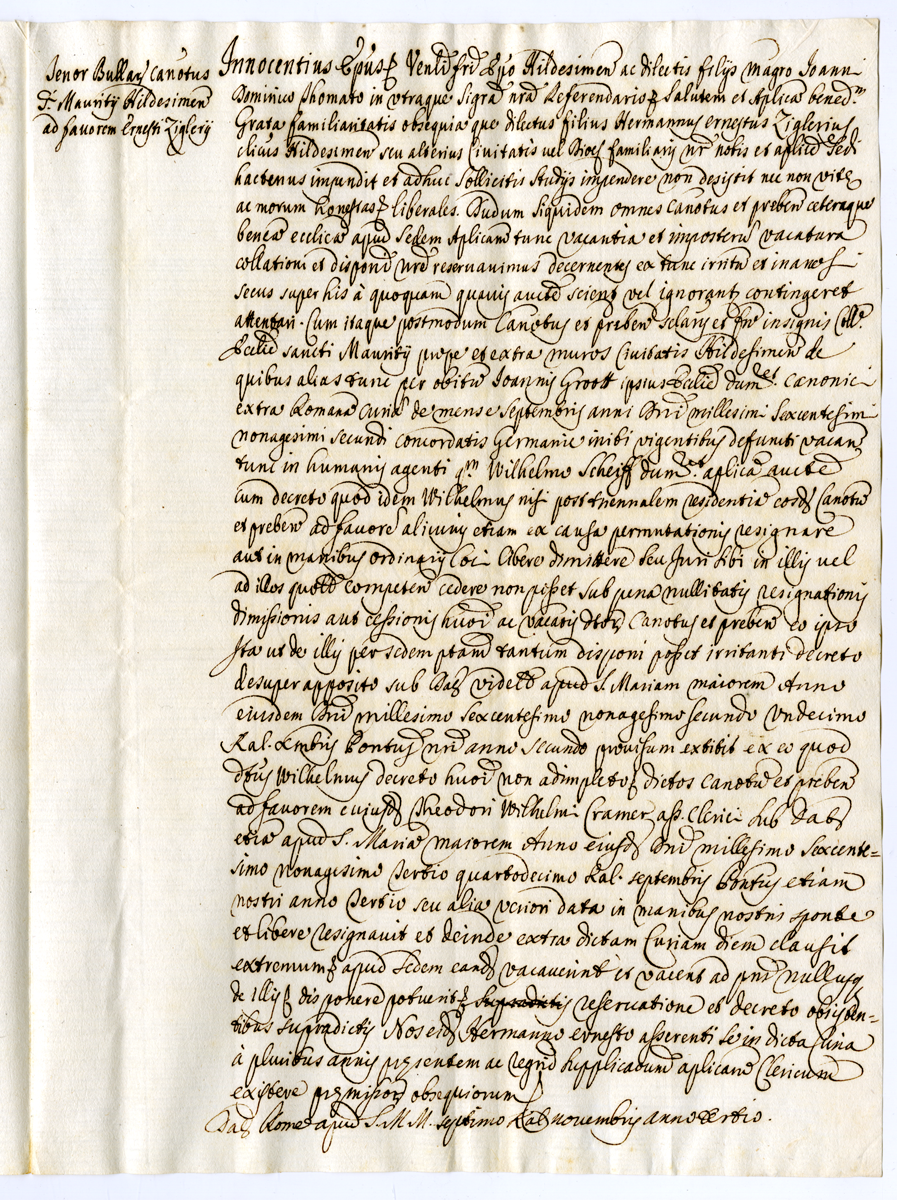 Tenor Bullæ Canotus
S. Mauritij Hildesimen
ad favorem Ernesti Ziglerij
Innocentius Epus Venli fri Epo Hildesimen ac dilectis filijs magro Joanni
Dominico Thomato in utraque Sigra nra Referendario Salutem et Aplicã bened.m
Grata familiaritatis obsequia que dilectus filius Hermannus ernestus Ziglerius
clicus Hildesimen seu alterius Civitatis vel Dioc familiaris nr nobis et aplice Sedi
hactenus impendit et adhuc sollicitis studijs impendere non desistit nec non vite
ac morum honestas liberales. Dudum siquidem omnes Canotus et preben ceteraque
benea ecclica apud Sedem Aplicam tunc vacantia et imposterũ vacatura
collationi et dispoñi nre reservavimus decernentes ex tunc irritũ et inane si
secus super his à quoquam quavis aucte scient vel ignorant contingeret
attentari. Cum itaque postmodum Canotus et preben secularis et insignis Colle.
Eccliæ sancti Mauritij prope et extra muros Civitatis Hildesimen de
quibus alias tunc per obitũ Joannis Groott ipsius Ecclie dum et canonici
extra Romanã Curiã de mense Septembris anni Dni millesimi Sexcentesimi
nonagesimi secundi concordatis Germanie inibi vigentibus defuncti vacan
tunc in humanis agenti qm Wilhelmo Scheiff dum et aplica aucte
cum decreto quod idem Wilhelmus nisi post triennalem residentiã eosd Canotũ
et preben ad favorẽ alicuius etiam ex causa permutationis resignare
aut in manibus ordinarij loci libere dimittere seu Juri sibi in illis vel
ad illos quolt competen cedere non posset sub pena nullitatis resignationis
dimissionis aut cessionis huoi ac vacatis dtos Canotus et preben eo ipso
Ita ut de illis per sedem ptam tantum disponi posset irritanti decreto
desuper apposito sub Dat videlt apud S. Mariam maiorem Anno
eiusdem Dni millesimo Sexcentesimo nonagesimo secundo Undecimo
Kal. Xmbris Pontus nri anno secundo provisum extitit ex eo quod
dtus Wilhelmus decreto huoi non adimpleto dictos canotũ et preben
ad favorem cujusd Theodori Wilhelmi Cramer ass. Clerici sub Dat
etiã apud S. Mariã maiorem Anno eiusd Dni millesimo Sexcente=
simo nonagesimo tertio quartodecimo Kal. septembris Pontus etiam
nostri anno tertio seu alia veriori data in manibus nostris sponte
et libere resignavit et deinde extra dictam Curiam diem clausit
extremum apud sedem eand vacaverint et vacent ad pns nullusq
de Illis disponere potuerit reservatione et decreto obsisten=
tibus supradictis Nos eid Hermanno ernesto asserenti se in dicta Curia
à pluribus annis præsentem ac negrũ supplicatũ aplicarũ Clericum
existere præmissor obsequiorum
Dat Rome apud S. M. M. septimo Kal novembris anno tertio.